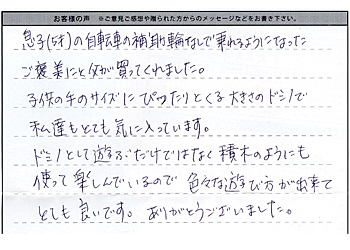 お客様の声 ※ご意見ご感想や贈られた方からのメッセージなどをお書き下さい。
息子(5才)の自転車の補助輪なしで乗れるようになった
ご褒美にと父が買ってくれました。
子供の手のサイズにぴったりとくる大きさのドミノで
私達もとても気に入っています。
ドミノとして遊ぶだけではなく積木のようにも
使って楽しんでいるので色々な遊び方が出来て
とても良いです。ありがとうございました。